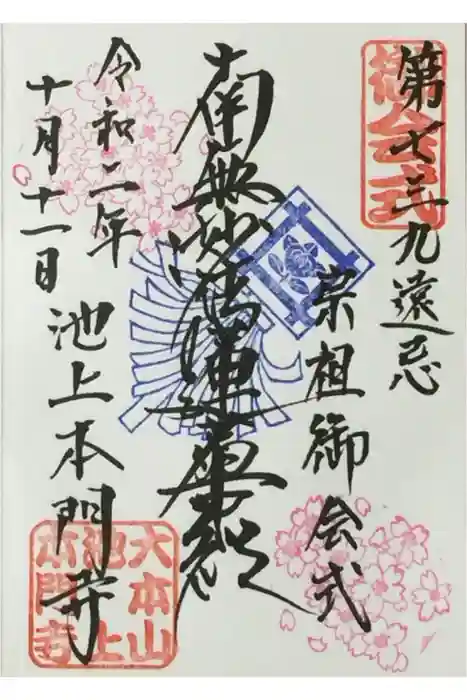 御会式
第七三九遠忌
宗祖御会式
南無妙法蓮華経
令和二年
十月十一日
池上本門寺
大本山
池上
本門寺